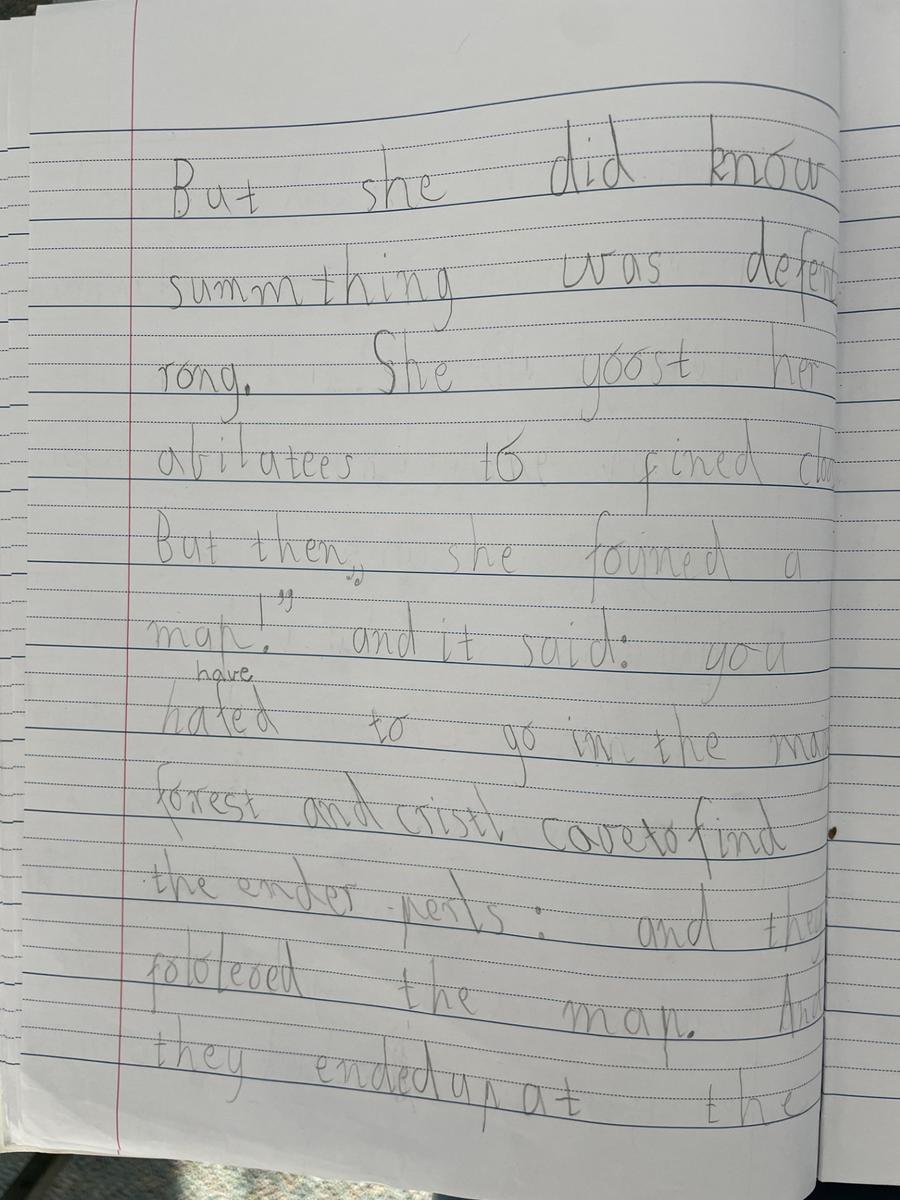 But she did know
summthing was
rong. She yoost her
abilatees to fined
But then,, she founed a
map!" and it said: you
have
hafed to go in the
forrest and cristl cavetofind
the ender-perls: and they
fololered the map. And
they endedupat the